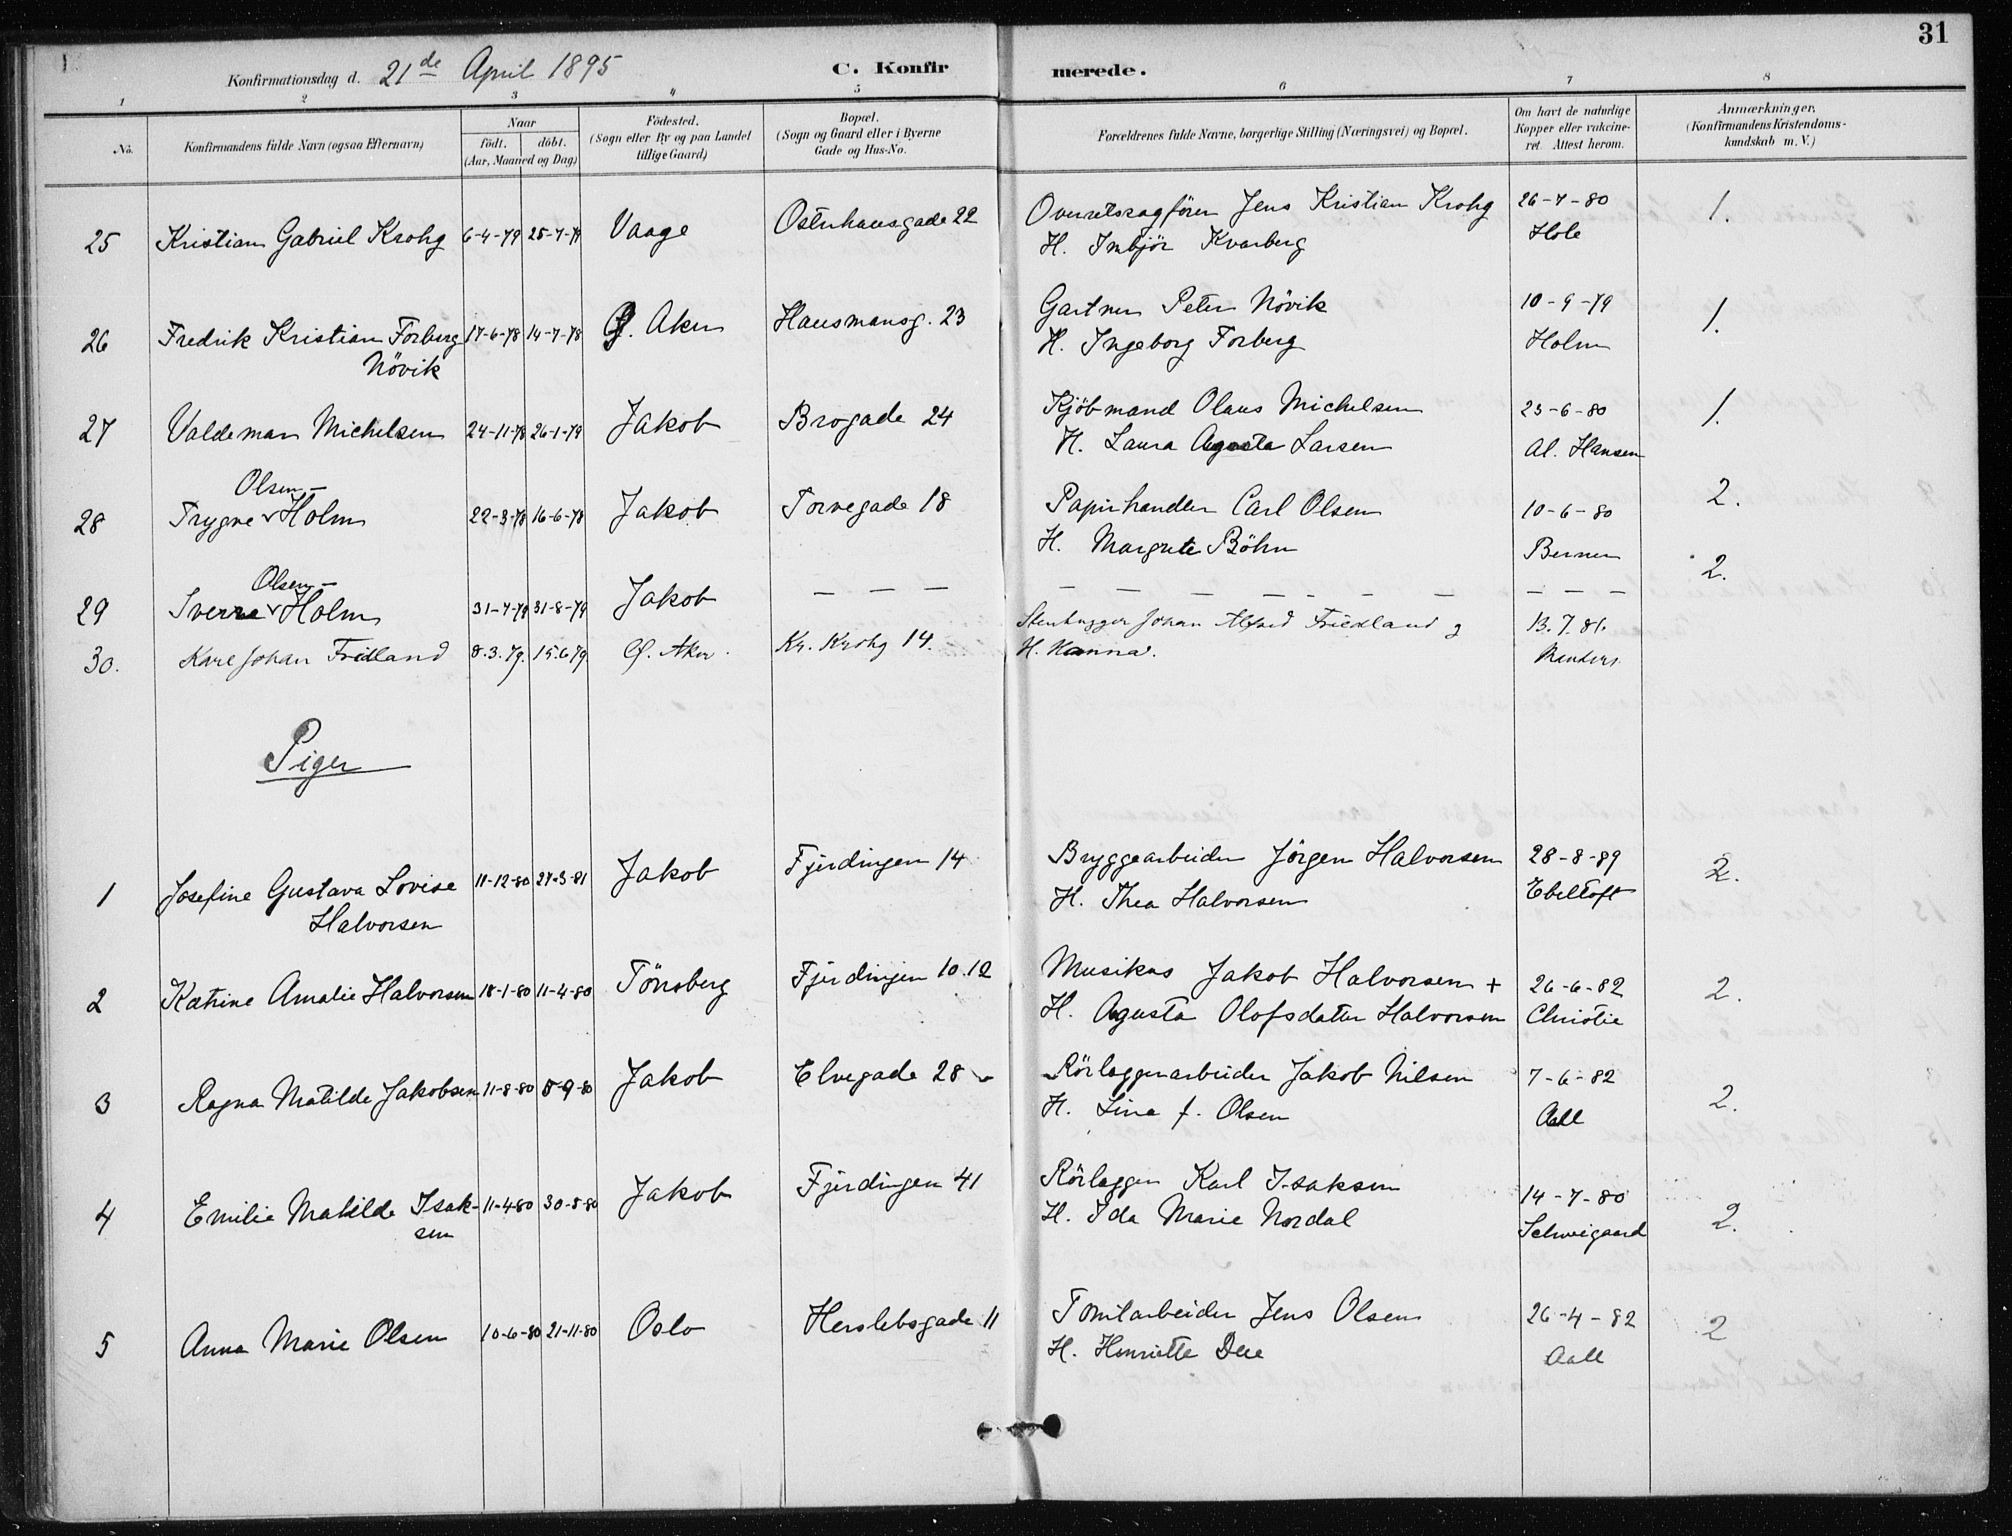 31
Konfirmationsdag d. 21de April 1895 C. Konfirmerede.
1 2 3 4 5 6 7 8
No. Konfirmandens fulde Navn (ogsaa Efternavn) Naar födt. döbt. (Aar, Maaned og Dag) Födested. (Sogn eller By og paa Landet tillige Gaard) Bopæl. (Sogn og Gaard eller i Byerne Gade og Hus-No. Forældrenes fulde Navne, borgerlige Stilling (Næringsvei) og Bopæl. Om havt de naturlige Kopper eller vakcineret. Attest herom. Anmærkninger, (Konfirmandens Kristendomskundskab m. V.)
25 Kristian Gabriel Krohg 6-4-79 25-7-79 Vaage Osterhausgade 22 Overretssagförer Jens Kristian Krohg 26-7-80 1.
H. Imbjör Kvarberg Hole
26 Fredrik Kristian Forberg 17-6-78 14-7-78 Ø. Aker Hausmansg. 23 Gartner Peter Növik 10-9-79 1.
Növik H. Ingeborg Forberg Holm
27 Valdemar Michelsen 24-11-78 26-1-79 Jakob Brogade 24 Kjöbmand Olaus Michelsen 23-6-80 1.
H. Laura Agusta Larsen Al. Hansen
Olsen-
28 Trygve Holm 22-3-78 16-6-78 Jakob Torvegade 18 Papirhandler Carl Olsen 10-6-80 2.
H. Margrete Böhn Berner
Olsen-
29 Sverre Holm 31-7-79 31-8-79 Jakob — — — — — — — — — — — — — — 2.
30. Karl Johan Fridland 8.3.79. 15.6.79 Ø. Aker. Kr. Krohg 14. Stenhugger Johan Alfred Friedland g 13.7.81.
H. Hanna.
Piger
1 Josefine Gustava Lovise 11-12-80 27-3-81 Jakob Fjerdingen 14 Bryggearbeider Jörgen Halvorsen 28-8-89 2.
Halvorsen H. Thea Halvorsen Ebeltoft
2 Katrine Amalie Halvorsen 18-1-80 11-4-80 Tönsberg Fjerdingen 10.12 Musikus Jakob Halvorsen + 26-6-82 2.
H. Agusta Olofsdatter Halvorsen Christie
3 Ragna Matilde Jakobsen 11-8-80 8-9-80 Jakob Elvegade 28 Rörlæggerarbeider Jakob Nilsen 7-6-82 2.
H. Lina f. Olsen Aall
4 Emilie Matilde Isak- 11-4-80 30-5-80 Jakob Fjerdingen 41 Rörlægger Karl Isaksen 14-7-80 2.
sen H. Ida Marie Nordal Schweigaard
5 Anna Marie Olsen 10-6-80 21-11-80 Oslo Herslebsgade 11 Tomtarbeider Jens Olsen 26-4-82 2
H. Henriette Aall